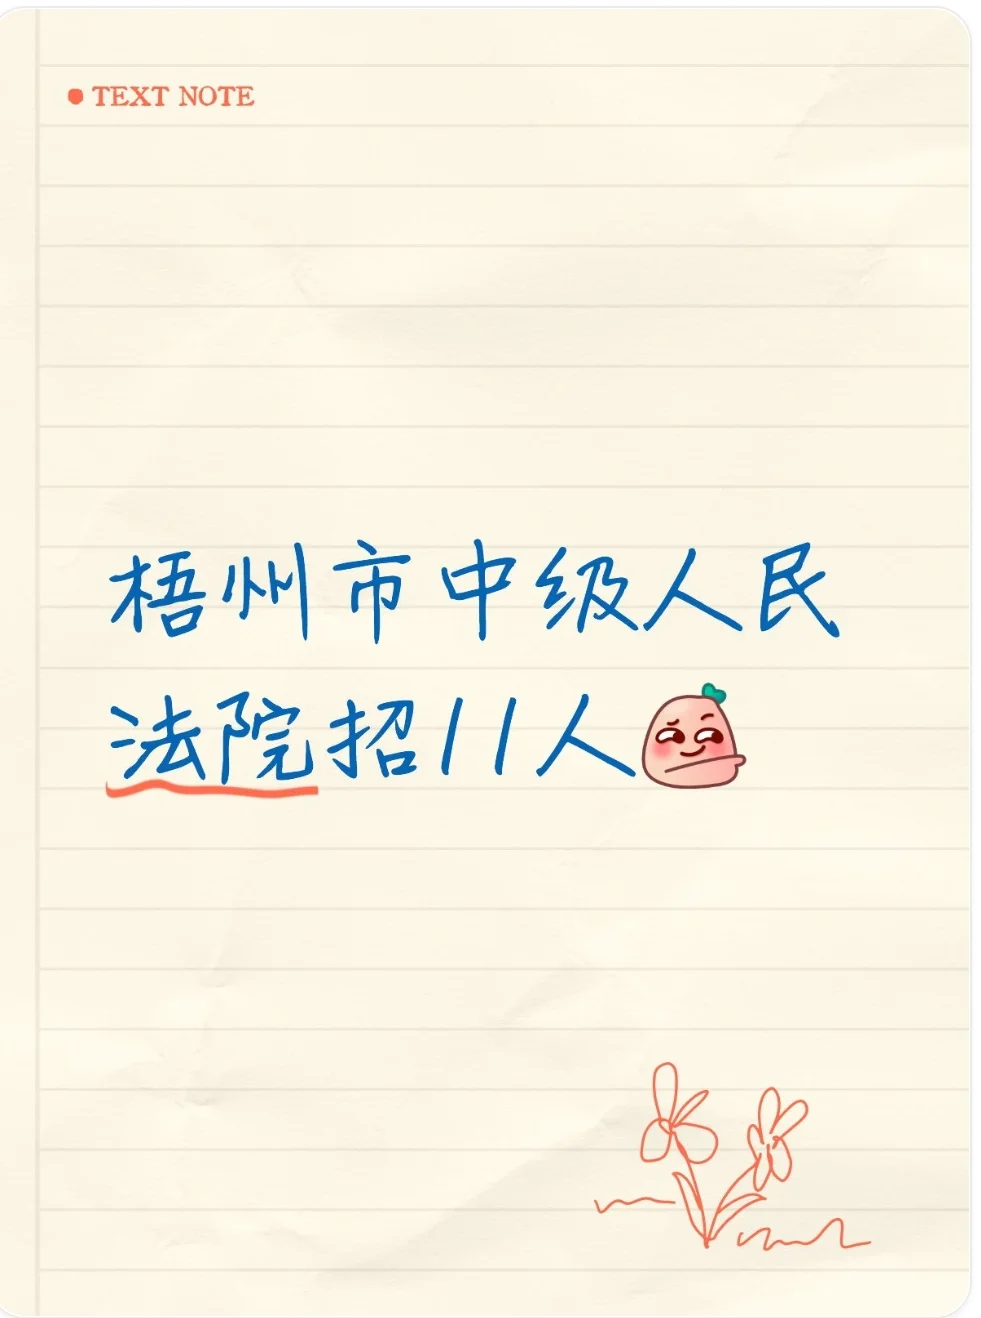 TEXT NOTE
梧州市中级人民
法院招11人